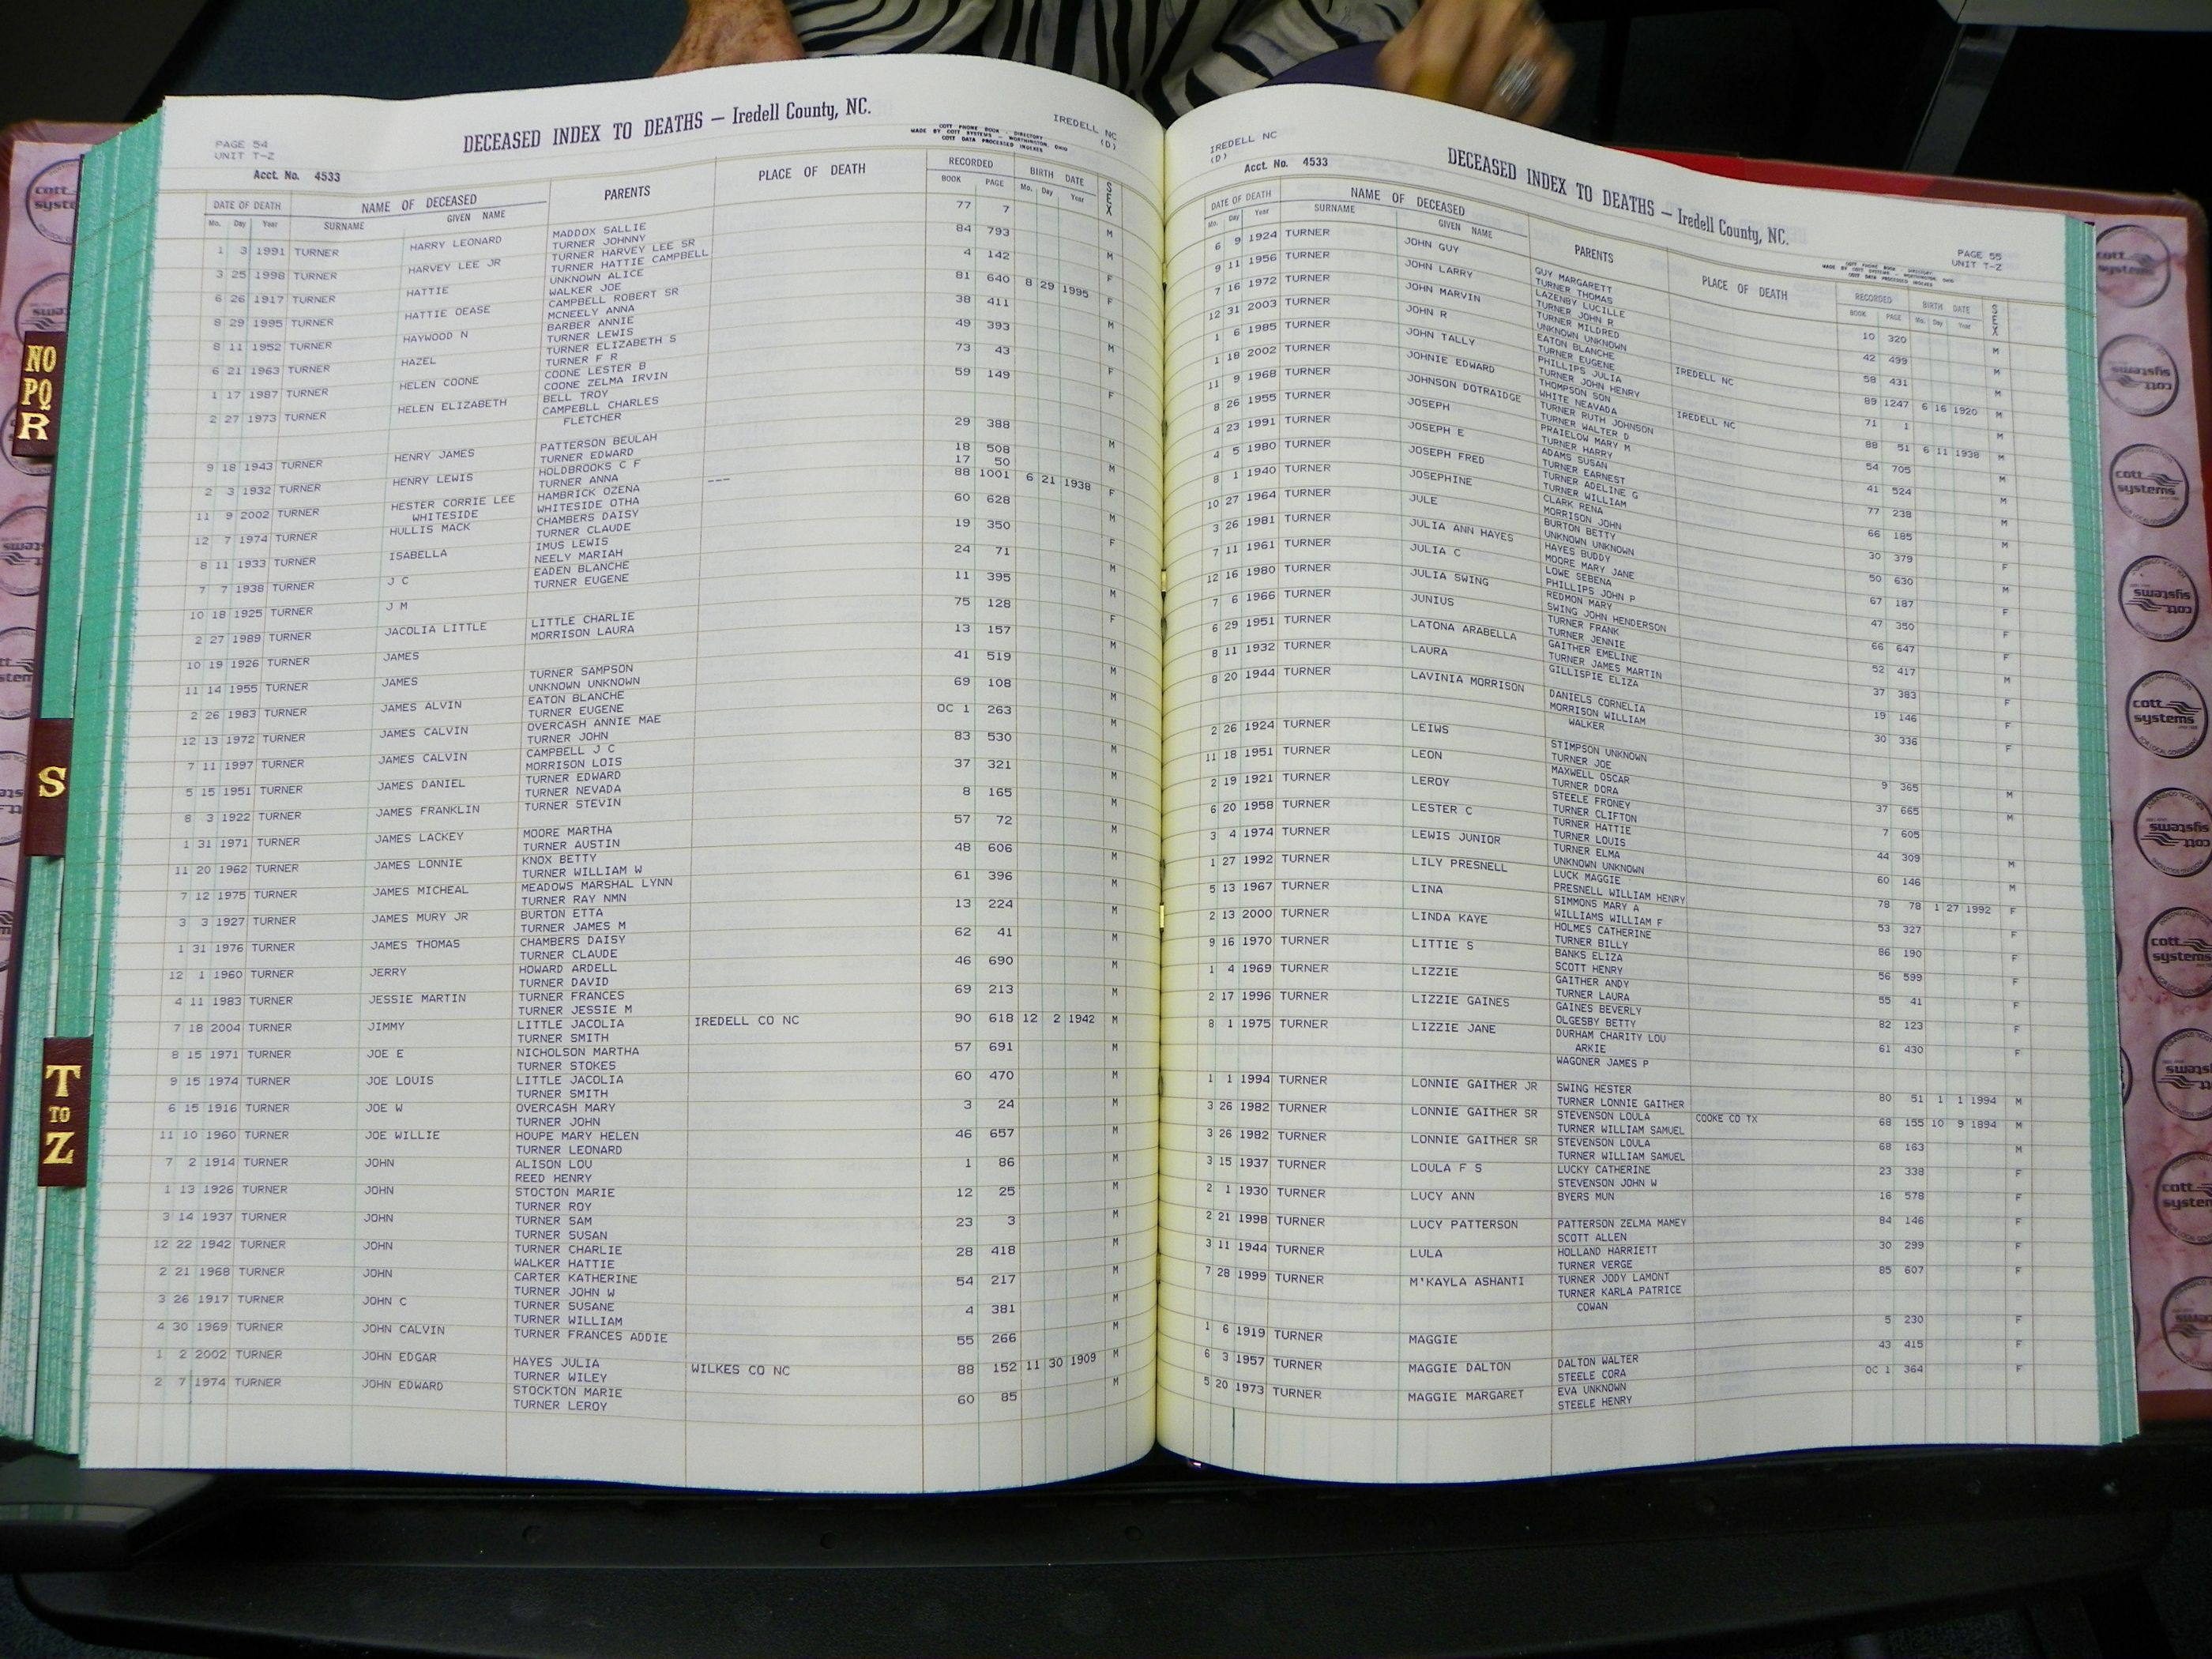 PAGE 54
UNIT T-Z
DECEASED INDEX TO DEATHS — Iredell County, NC.
COTT PHONE BOOK - DIRECTORY
MADE BY COTT SYSTEMS - WORTHINGTON, OHIO
COTT DATA PROCESSED INDEXES
IREDELL NC
(D)
Acct. No. 4533
DATE OF DEATH NAME OF DECEASED PARENTS PLACE OF DEATH RECORDED BIRTH DATE SEX
Mo. Day Year SURNAME GIVEN NAME BOOK PAGE Mo. Day Year
1 3 1991 TURNER HARRY LEONARD MADDOX SALLIE 77 7 M
TURNER JOHNNY
3 25 1998 TURNER HARVEY LEE JR TURNER HARVEY LEE SR 84 793 M
TURNER HATTIE CAMPBELL
6 26 1917 TURNER HATTIE UNKNOWN ALICE 4 142 F
WALKER JOE
8 29 1995 TURNER HATTIE OEASE CAMPBELL ROBERT SR 81 640 8 29 1995 F
MCNEELY ANNA
8 11 1952 TURNER HAYWOOD N BARBER ANNIE 38 411 M
TURNER LEWIS
6 21 1963 TURNER HAZEL TURNER ELIZABETH S 49 393 M
TURNER F R
1 17 1987 TURNER HELEN COONE COONE LESTER B 73 43 F
COONE ZELMA IRVIN
2 27 1973 TURNER HELEN ELIZABETH BELL TROY 59 149 F
CAMPEBLL CHARLES
FLETCHER
9 18 1943 TURNER HENRY JAMES PATTERSON BEULAH 29 388 M
TURNER EDWARD
2 3 1932 TURNER HENRY LEWIS HOLDBROOKS C F 18 508 M
TURNER ANNA 17 50
11 9 2002 TURNER HESTER CORRIE LEE HAMBRICK OZENA --- 88 1001 6 21 1938 F
WHITESIDE WHITESIDE OTHA
12 7 1974 TURNER HULLIS MACK CHAMBERS DAISY 60 628 M
TURNER CLAUDE
8 11 1933 TURNER ISABELLA IMUS LEWIS 19 350 F
NEELY MARIAH
7 7 1938 TURNER J C EADEN BLANCHE 24 71 M
TURNER EUGENE
10 18 1925 TURNER J M 11 395 M
2 27 1989 TURNER JACOLIA LITTLE LITTLE CHARLIE 75 128 F
MORRISON LAURA
10 19 1926 TURNER JAMES 13 157 M
11 14 1955 TURNER JAMES TURNER SAMPSON 41 519 M
UNKNOWN UNKNOWN
2 26 1983 TURNER JAMES ALVIN EATON BLANCHE 69 108 M
TURNER EUGENE
12 13 1972 TURNER JAMES CALVIN OVERCASH ANNIE MAE OC 1 263 M
TURNER JOHN
7 11 1997 TURNER JAMES CALVIN CAMPBELL J C 83 530 M
MORRISON LOIS
5 15 1951 TURNER JAMES DANIEL TURNER EDWARD 37 321 M
TURNER NEVADA
8 3 1922 TURNER JAMES FRANKLIN TURNER STEVIN 8 165 M
1 31 1971 TURNER JAMES LACKEY MOORE MARTHA 57 72 M
TURNER AUSTIN
11 20 1962 TURNER JAMES LONNIE KNOX BETTY 48 606 M
TURNER WILLIAM W
7 12 1975 TURNER JAMES MICHEAL MEADOWS MARSHAL LYNN 61 396 M
TURNER RAY NMN
3 3 1927 TURNER JAMES MURY JR BURTON ETTA 13 224 M
TURNER JAMES M
1 31 1976 TURNER JAMES THOMAS CHAMBERS DAISY 62 41 M
TURNER CLAUDE
12 1 1960 TURNER JERRY HOWARD ARDELL 46 690 M
TURNER DAVID
4 11 1983 TURNER JESSIE MARTIN TURNER FRANCES 69 213 M
TURNER JESSIE M
7 18 2004 TURNER JIMMY LITTLE JACOLIA IREDELL CO NC 90 618 12 2 1942 M
TURNER SMITH
8 15 1971 TURNER JOE E NICHOLSON MARTHA 57 691 M
TURNER STOKES
9 15 1974 TURNER JOE LOUIS LITTLE JACOLIA 60 470 M
TURNER SMITH
6 15 1916 TURNER JOE W OVERCASH MARY 3 24 M
TURNER JOHN
11 10 1960 TURNER JOE WILLIE HOUPE MARY HELEN 46 657 M
TURNER LEONARD
7 2 1914 TURNER JOHN ALISON LOU 1 86 M
REED HENRY
1 13 1926 TURNER JOHN STOCTON MARIE 12 25 M
TURNER ROY
3 14 1937 TURNER JOHN TURNER SAM 23 3 M
TURNER SUSAN
12 22 1942 TURNER JOHN TURNER CHARLIE 28 418 M
WALKER HATTIE
2 21 1968 TURNER JOHN CARTER KATHERINE 54 217 M
TURNER JOHN W
3 26 1917 TURNER JOHN C TURNER SUSANE 4 381 M
TURNER WILLIAM
4 30 1969 TURNER JOHN CALVIN TURNER FRANCES ADDIE 55 266 M
1 2 2002 TURNER JOHN EDGAR HAYES JULIA WILKES CO NC 88 152 11 30 1909 M
TURNER WILEY
2 7 1974 TURNER JOHN EDWARD STOCKTON MARIE 60 85 M
TURNER LEROY
IREDELL NC
(D)
DECEASED INDEX TO DEATHS — Iredell County, NC.
COTT PHONE BOOK - DIRECTORY
MADE BY COTT SYSTEMS - WORTHINGTON, OHIO
COTT DATA PROCESSED INDEXES
PAGE 55
UNIT T-Z
Acct. No. 4533
DATE OF DEATH NAME OF DECEASED PARENTS PLACE OF DEATH RECORDED BIRTH DATE SEX
Mo. Day Year SURNAME GIVEN NAME BOOK PAGE Mo. Day Year
6 9 1924 TURNER JOHN GUY GUY MARGARETT 10 320 M
TURNER THOMAS
9 11 1956 TURNER JOHN LARRY LAZENBY LUCILLE 42 499 M
TURNER JOHN R
7 16 1972 TURNER JOHN MARVIN TURNER MILDRED IREDELL NC 58 431 M
UNKNOWN UNKNOWN
12 31 2003 TURNER JOHN R EATON BLANCHE IREDELL NC 89 1247 6 16 1920 M
TURNER EUGENE
1 6 1985 TURNER JOHN TALLY PHILLIPS JULIA 71 1 M
TURNER JOHN HENRY
1 18 2002 TURNER JOHNIE EDWARD THOMPSON SON 88 51 6 11 1938 M
WHITE NEAVADA
11 9 1968 TURNER JOHNSON DOTRAIDGE TURNER RUTH JOHNSON 54 705 M
TURNER WALTER D
8 26 1955 TURNER JOSEPH PRAIELOW MARY M 41 524 M
TURNER HARRY
4 23 1991 TURNER JOSEPH E ADAMS SUSAN 77 238 M
TURNER EARNEST
4 5 1980 TURNER JOSEPH FRED TURNER ADELINE G 66 185 M
TURNER WILLIAM
8 1 1940 TURNER JOSEPHINE CLARK RENA 30 379 F
MORRISON JOHN
10 27 1964 TURNER JULE BURTON BETTY 50 630 M
UNKNOWN UNKNOWN
3 26 1981 TURNER JULIA ANN HAYES HAYES BUDDY 67 187 F
MOORE MARY JANE
7 11 1961 TURNER JULIA C LOWE SEBENA 47 350 F
PHILLIPS JOHN P
12 16 1980 TURNER JULIA SWING REDMON MARY 66 647 F
SWING JOHN HENDERSON
7 6 1966 TURNER JUNIUS TURNER FRANK 52 417 M
TURNER JENNIE
6 29 1951 TURNER LATONA ARABELLA GAITHER EMELINE 37 383 F
TURNER JAMES MARTIN
8 11 1932 TURNER LAURA GILLISPIE ELIZA 19 146 F
8 20 1944 TURNER LAVINIA MORRISON DANIELS CORNELIA 30 336 F
MORRISON WILLIAM
WALKER
2 26 1924 TURNER LEIWS STIMPSON UNKNOWN 9 365 M
TURNER JOE
11 18 1951 TURNER LEON MAXWELL OSCAR 37 665 M
TURNER DORA
2 19 1921 TURNER LEROY STEELE FRONEY 7 605 M
TURNER CLIFTON
6 20 1958 TURNER LESTER C TURNER HATTIE 44 309 M
TURNER LOUIS
3 4 1974 TURNER LEWIS JUNIOR TURNER ELMA 60 146 M
UNKNOWN UNKNOWN
1 27 1992 TURNER LILY PRESNELL LUCK MAGGIE 78 78 1 27 1992 F
PRESNELL WILLIAM HENRY
5 13 1967 TURNER LINA SIMMONS MARY A 53 327 F
WILLIAMS WILLIAM F
2 13 2000 TURNER LINDA KAYE HOLMES CATHERINE 86 190 F
TURNER BILLY
9 16 1970 TURNER LITTIE S BANKS ELIZA 56 599 F
SCOTT HENRY
1 4 1969 TURNER LIZZIE GAITHER ANDY 55 41 F
TURNER LAURA
2 17 1996 TURNER LIZZIE GAINES GAINES BEVERLY 82 123 F
OLGESBY BETTY
8 1 1975 TURNER LIZZIE JANE DURHAM CHARITY LOU 61 430 F
ARKIE
WAGONER JAMES P
1 1 1994 TURNER LONNIE GAITHER JR SWING HESTER 80 51 1 1 1994 M
TURNER LONNIE GAITHER
3 26 1982 TURNER LONNIE GAITHER SR STEVENSON LOULA COOKE CO TX 68 155 10 9 1894 M
TURNER WILLIAM SAMUEL
3 26 1982 TURNER LONNIE GAITHER SR STEVENSON LOULA 68 163 M
TURNER WILLIAM SAMUEL
3 15 1937 TURNER LOULA F S LUCKY CATHERINE 23 338 F
STEVENSON JOHN W
2 1 1930 TURNER LUCY ANN BYERS MUN 16 578 F
2 21 1998 TURNER LUCY PATTERSON PATTERSON ZELMA MAMEY 84 146 F
SCOTT ALLEN
3 11 1944 TURNER LULA HOLLAND HARRIETT 30 299 F
TURNER VERGE
7 28 1999 TURNER M'KAYLA ASHANTI TURNER JODY LAMONT 85 607 F
TURNER KARLA PATRICE
COWAN
1 6 1919 TURNER MAGGIE 5 230 F
6 3 1957 TURNER MAGGIE DALTON DALTON WALTER 43 415 F
STEELE CORA
5 20 1973 TURNER MAGGIE MARGARET EVA UNKNOWN OC 1 364 F
STEELE HENRY
NO
PQ
R
S
T
TO
Z
cott systems
FOR LOCAL GOVERNMENT